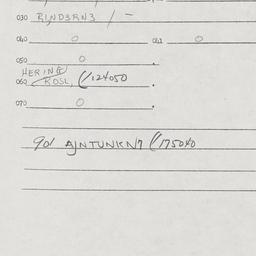 030 RIND3RN3 / -
040 0 042 0
050 0 .
HERING
060 ROSL (/124050 .
070 0 .
901 AJNTUNKN7 (/175040